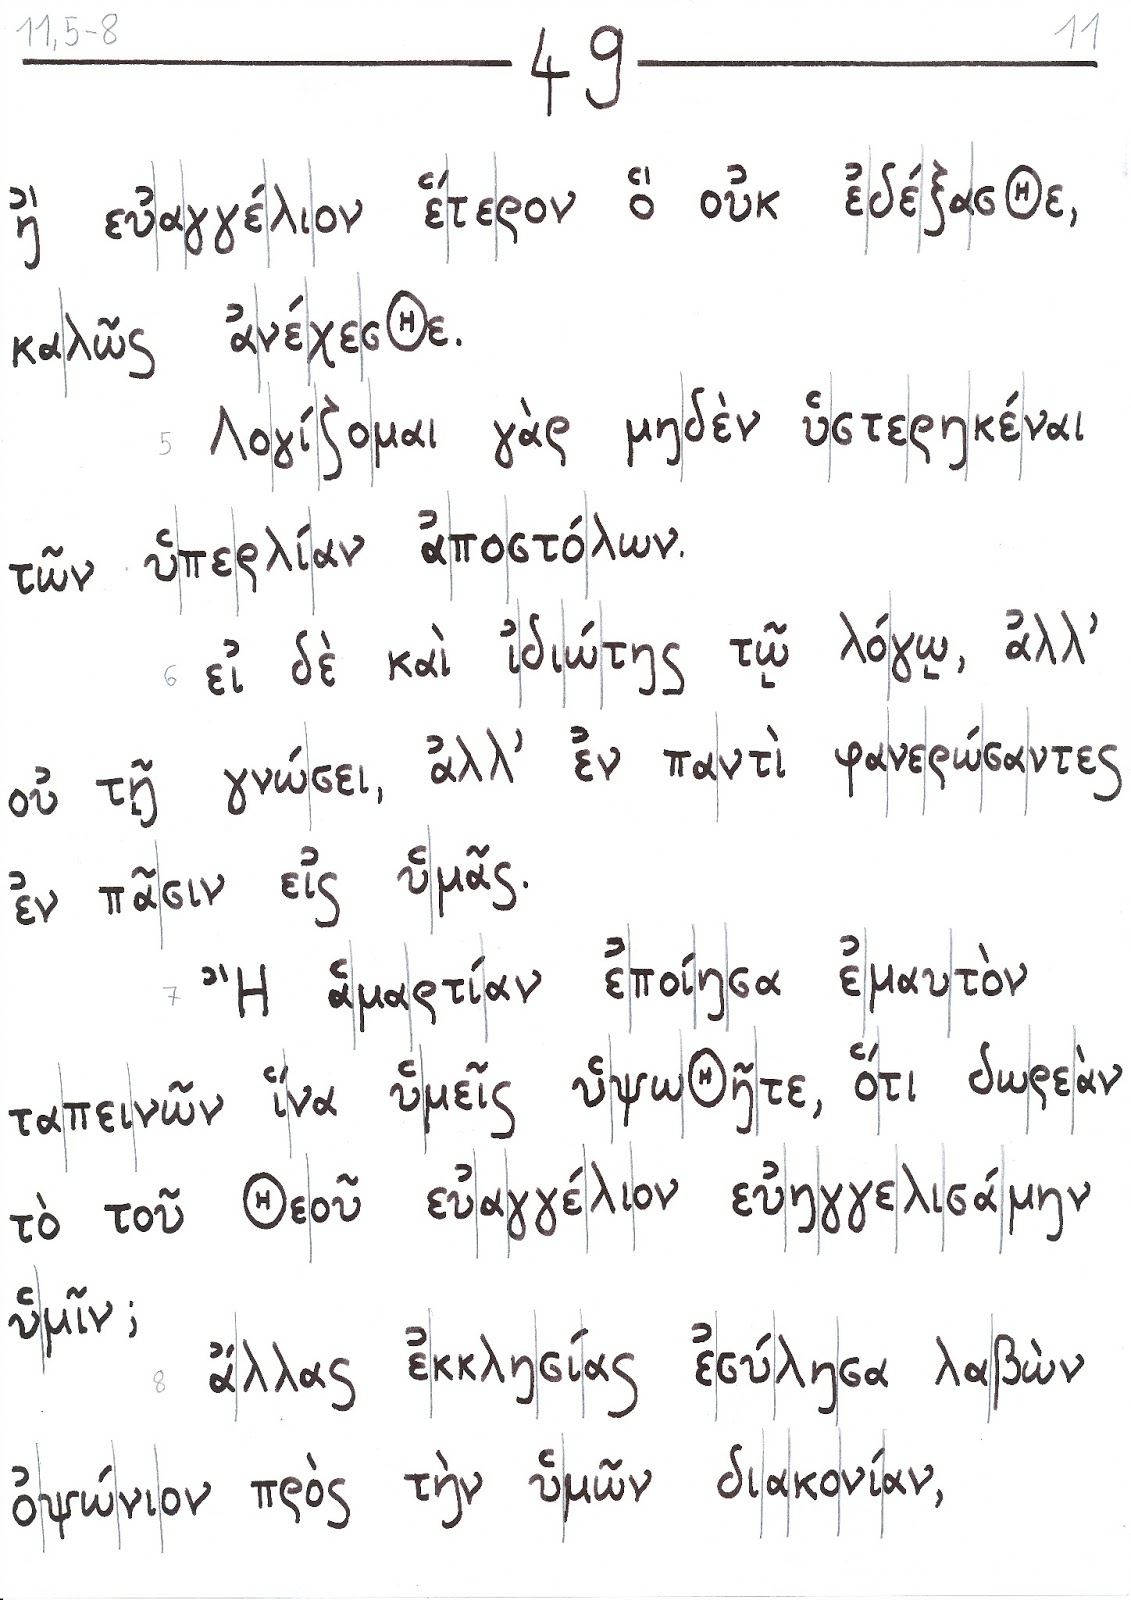 11,5-8 49 11
ἢ εὐαγγέλιον ἕτερον ὃ οὐκ ἐδέξασθε,
καλῶς ἀνέχεσθε.
5 Λογίζομαι γὰρ μηδὲν ὑστερηκέναι
τῶν ὑπερλίαν ἀποστόλων.
6 εἰ δὲ καὶ ἰδιώτης τῷ λόγῳ, ἀλλ’
οὐ τῇ γνώσει, ἀλλ’ ἐν παντὶ φανερώσαντες
ἐν πᾶσιν εἰς ὑμᾶς.
7 Ἢ ἁμαρτίαν ἐποίησα ἐμαυτὸν
ταπεινῶν ἵνα ὑμεῖς ὑψωθῆτε, ὅτι δωρεὰν
τὸ τοῦ Θεοῦ εὐαγγέλιον εὐηγγελισάμην
ὑμῖν;
8 ἄλλας ἐκκλησίας ἐσύλησα λαβὼν
ὀψώνιον πρὸς τὴν ὑμῶν διακονίαν,